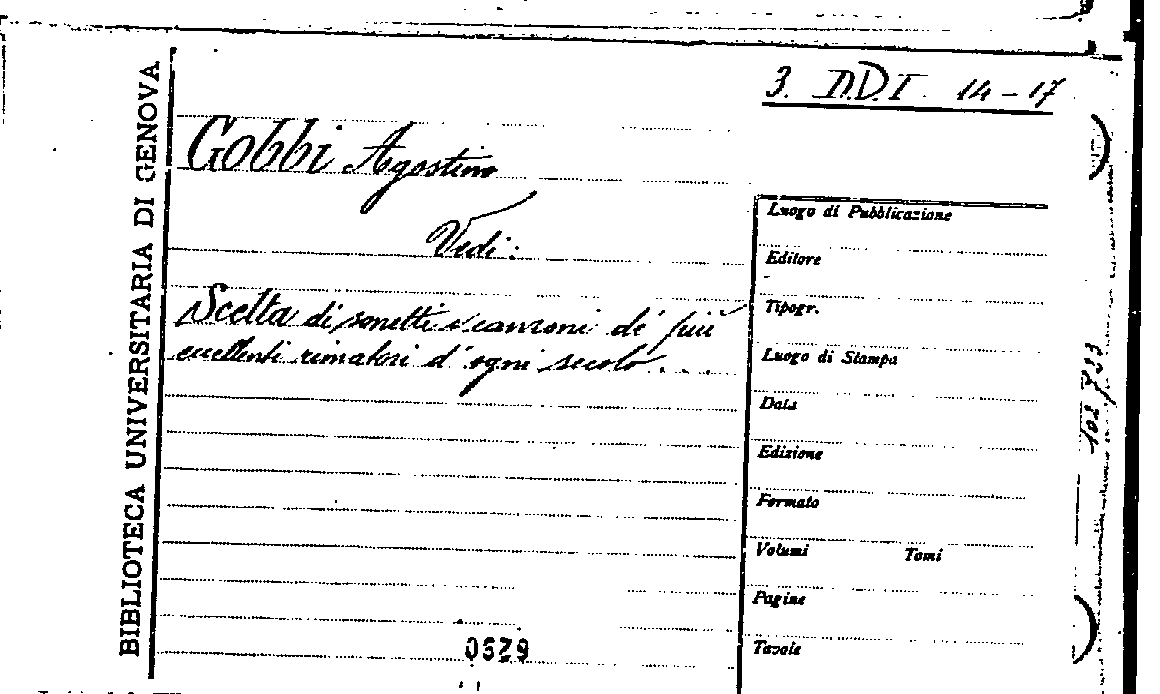 3. D.D.I. 14-17
Gobbi Agostino
Vedi:
Scelta di sonetti e canzoni de' più
eccellenti rimatori d'ogni secolo...
BIBLIOTECA UNIVERSITARIA DI GENOVA
Luogo di Pubblicazione
Editore
Tipogr.
Luogo di Stampa
Data
Edizione
Formato
Volumi Tomi
Pagine
Tavole